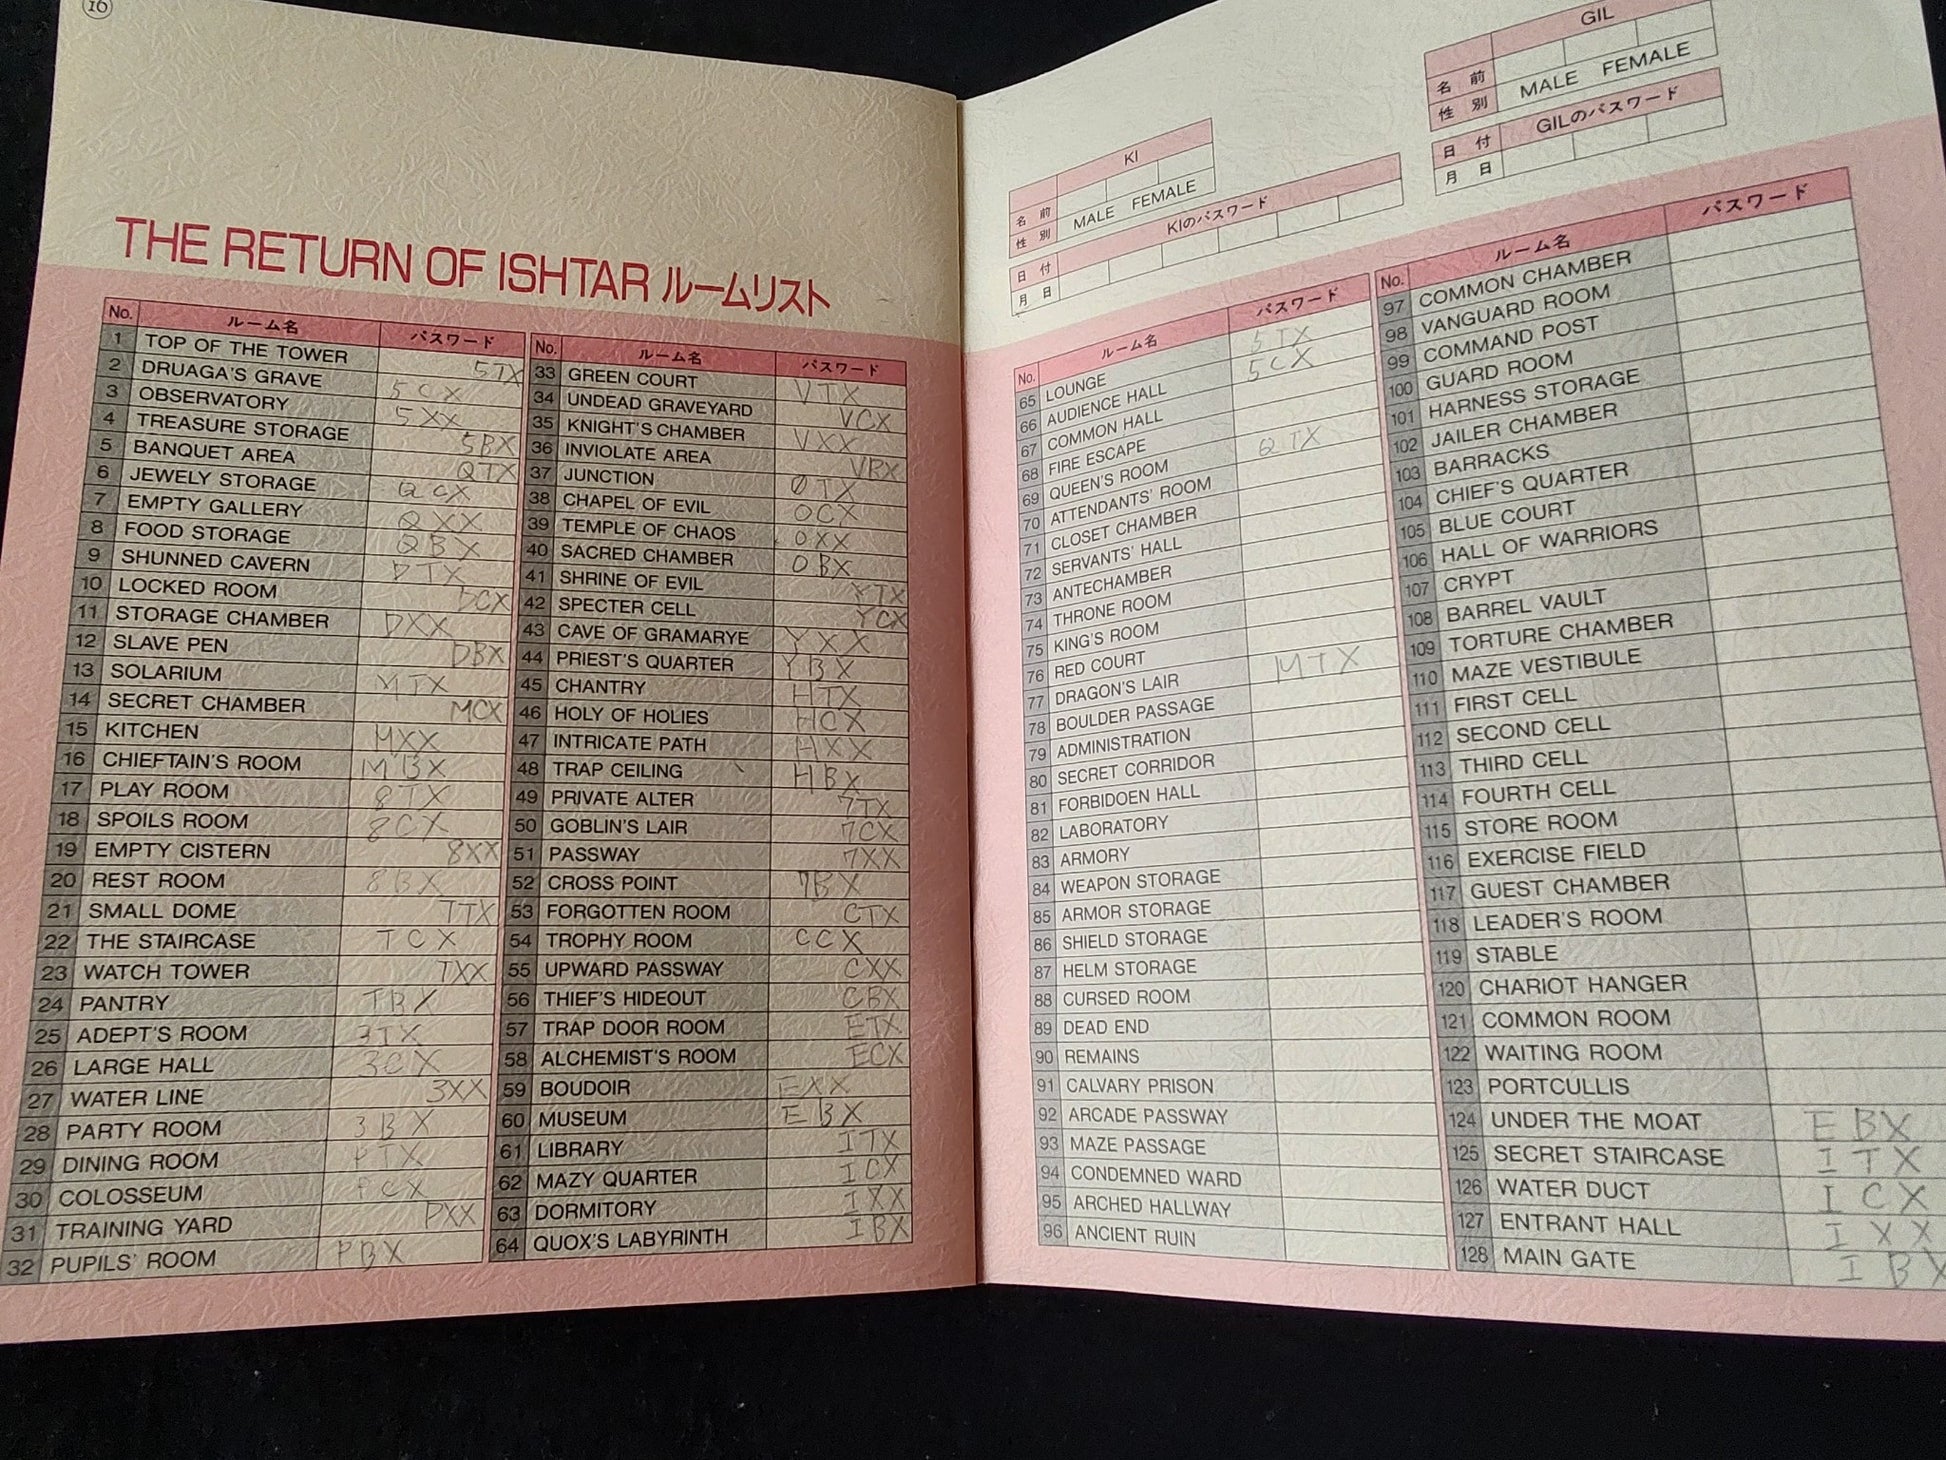 16
THE RETURN OF ISHTAR ルームリスト
No. ルーム名 パスワード
1 TOP OF THE TOWER 5TX
2 DRUAGA'S GRAVE 5CX
3 OBSERVATORY 5XX
4 TREASURE STORAGE 5BX
5 BANQUET AREA QTX
6 JEWELY STORAGE QCX
7 EMPTY GALLERY QXX
8 FOOD STORAGE QBX
9 SHUNNED CAVERN DTX
10 LOCKED ROOM DCX
11 STORAGE CHAMBER DXX
12 SLAVE PEN DBX
13 SOLARIUM MTX
14 SECRET CHAMBER MCX
15 KITCHEN MXX
16 CHIEFTAIN'S ROOM MBX
17 PLAY ROOM 8TX
18 SPOILS ROOM 8CX
19 EMPTY CISTERN 8XX
20 REST ROOM 8BX
21 SMALL DOME TTX
22 THE STAIRCASE TCX
23 WATCH TOWER TXX
24 PANTRY TBX
25 ADEPT'S ROOM 3TX
26 LARGE HALL 3CX
27 WATER LINE 3XX
28 PARTY ROOM 3BX
29 DINING ROOM PTX
30 COLOSSEUM PCX
31 TRAINING YARD PXX
32 PUPILS' ROOM PBX
No. ルーム名 パスワード
33 GREEN COURT VTX
34 UNDEAD GRAVEYARD VCX
35 KNIGHT'S CHAMBER VXX
36 INVIOLATE AREA VBX
37 JUNCTION 0TX
38 CHAPEL OF EVIL 0CX
39 TEMPLE OF CHAOS 0XX
40 SACRED CHAMBER 0BX
41 SHRINE OF EVIL YTX
42 SPECTER CELL YCX
43 CAVE OF GRAMARYE YXX
44 PRIEST'S QUARTER YBX
45 CHANTRY HTX
46 HOLY OF HOLIES HCX
47 INTRICATE PATH HXX
48 TRAP CEILING HBX
49 PRIVATE ALTER 7TX
50 GOBLIN'S LAIR 7CX
51 PASSWAY 7XX
52 CROSS POINT 7BX
53 FORGOTTEN ROOM CTX
54 TROPHY ROOM CCX
55 UPWARD PASSWAY CXX
56 THIEF'S HIDEOUT CBX
57 TRAP DOOR ROOM ETX
58 ALCHEMIST'S ROOM ECX
59 BOUDOIR EXX
60 MUSEUM EBX
61 LIBRARY ITX
62 MAZY QUARTER ICX
63 DORMITORY IXX
64 QUOX'S LABYRINTH IBX
KI
名前
性別 MALE FEMALE
日付 KIのパスワード
月 日
GIL
名前
性別 MALE FEMALE
日付 GILのパスワード
月 日
No. ルーム名 パスワード
65 LOUNGE 5TX
66 AUDIENCE HALL 5CX
67 COMMON HALL
68 FIRE ESCAPE
69 QUEEN'S ROOM QTX
70 ATTENDANTS' ROOM
71 CLOSET CHAMBER
72 SERVANTS' HALL
73 ANTECHAMBER
74 THRONE ROOM
75 KING'S ROOM
76 RED COURT
77 DRAGON'S LAIR MTX
78 BOULDER PASSAGE
79 ADMINISTRATION
80 SECRET CORRIDOR
81 FORBIDOEN HALL
82 LABORATORY
83 ARMORY
84 WEAPON STORAGE
85 ARMOR STORAGE
86 SHIELD STORAGE
87 HELM STORAGE
88 CURSED ROOM
89 DEAD END
90 REMAINS
91 CALVARY PRISON
92 ARCADE PASSWAY
93 MAZE PASSAGE
94 CONDEMNED WARD
95 ARCHED HALLWAY
96 ANCIENT RUIN
No. ルーム名 パスワード
97 COMMON CHAMBER
98 VANGUARD ROOM
99 COMMAND POST
100 GUARD ROOM
101 HARNESS STORAGE
102 JAILER CHAMBER
103 BARRACKS
104 CHIEF'S QUARTER
105 BLUE COURT
106 HALL OF WARRIORS
107 CRYPT
108 BARREL VAULT
109 TORTURE CHAMBER
110 MAZE VESTIBULE
111 FIRST CELL
112 SECOND CELL
113 THIRD CELL
114 FOURTH CELL
115 STORE ROOM
116 EXERCISE FIELD
117 GUEST CHAMBER
118 LEADER'S ROOM
119 STABLE
120 CHARIOT HANGER
121 COMMON ROOM
122 WAITING ROOM
123 PORTCULLIS
124 UNDER THE MOAT EBX
125 SECRET STAIRCASE ITX
126 WATER DUCT ICX
127 ENTRANT HALL IXX
128 MAIN GATE IBX